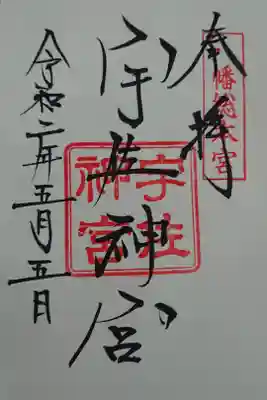 奉拝
八幡総本宮
宇佐神宮
宇佐
神宮
令和二年五月五日